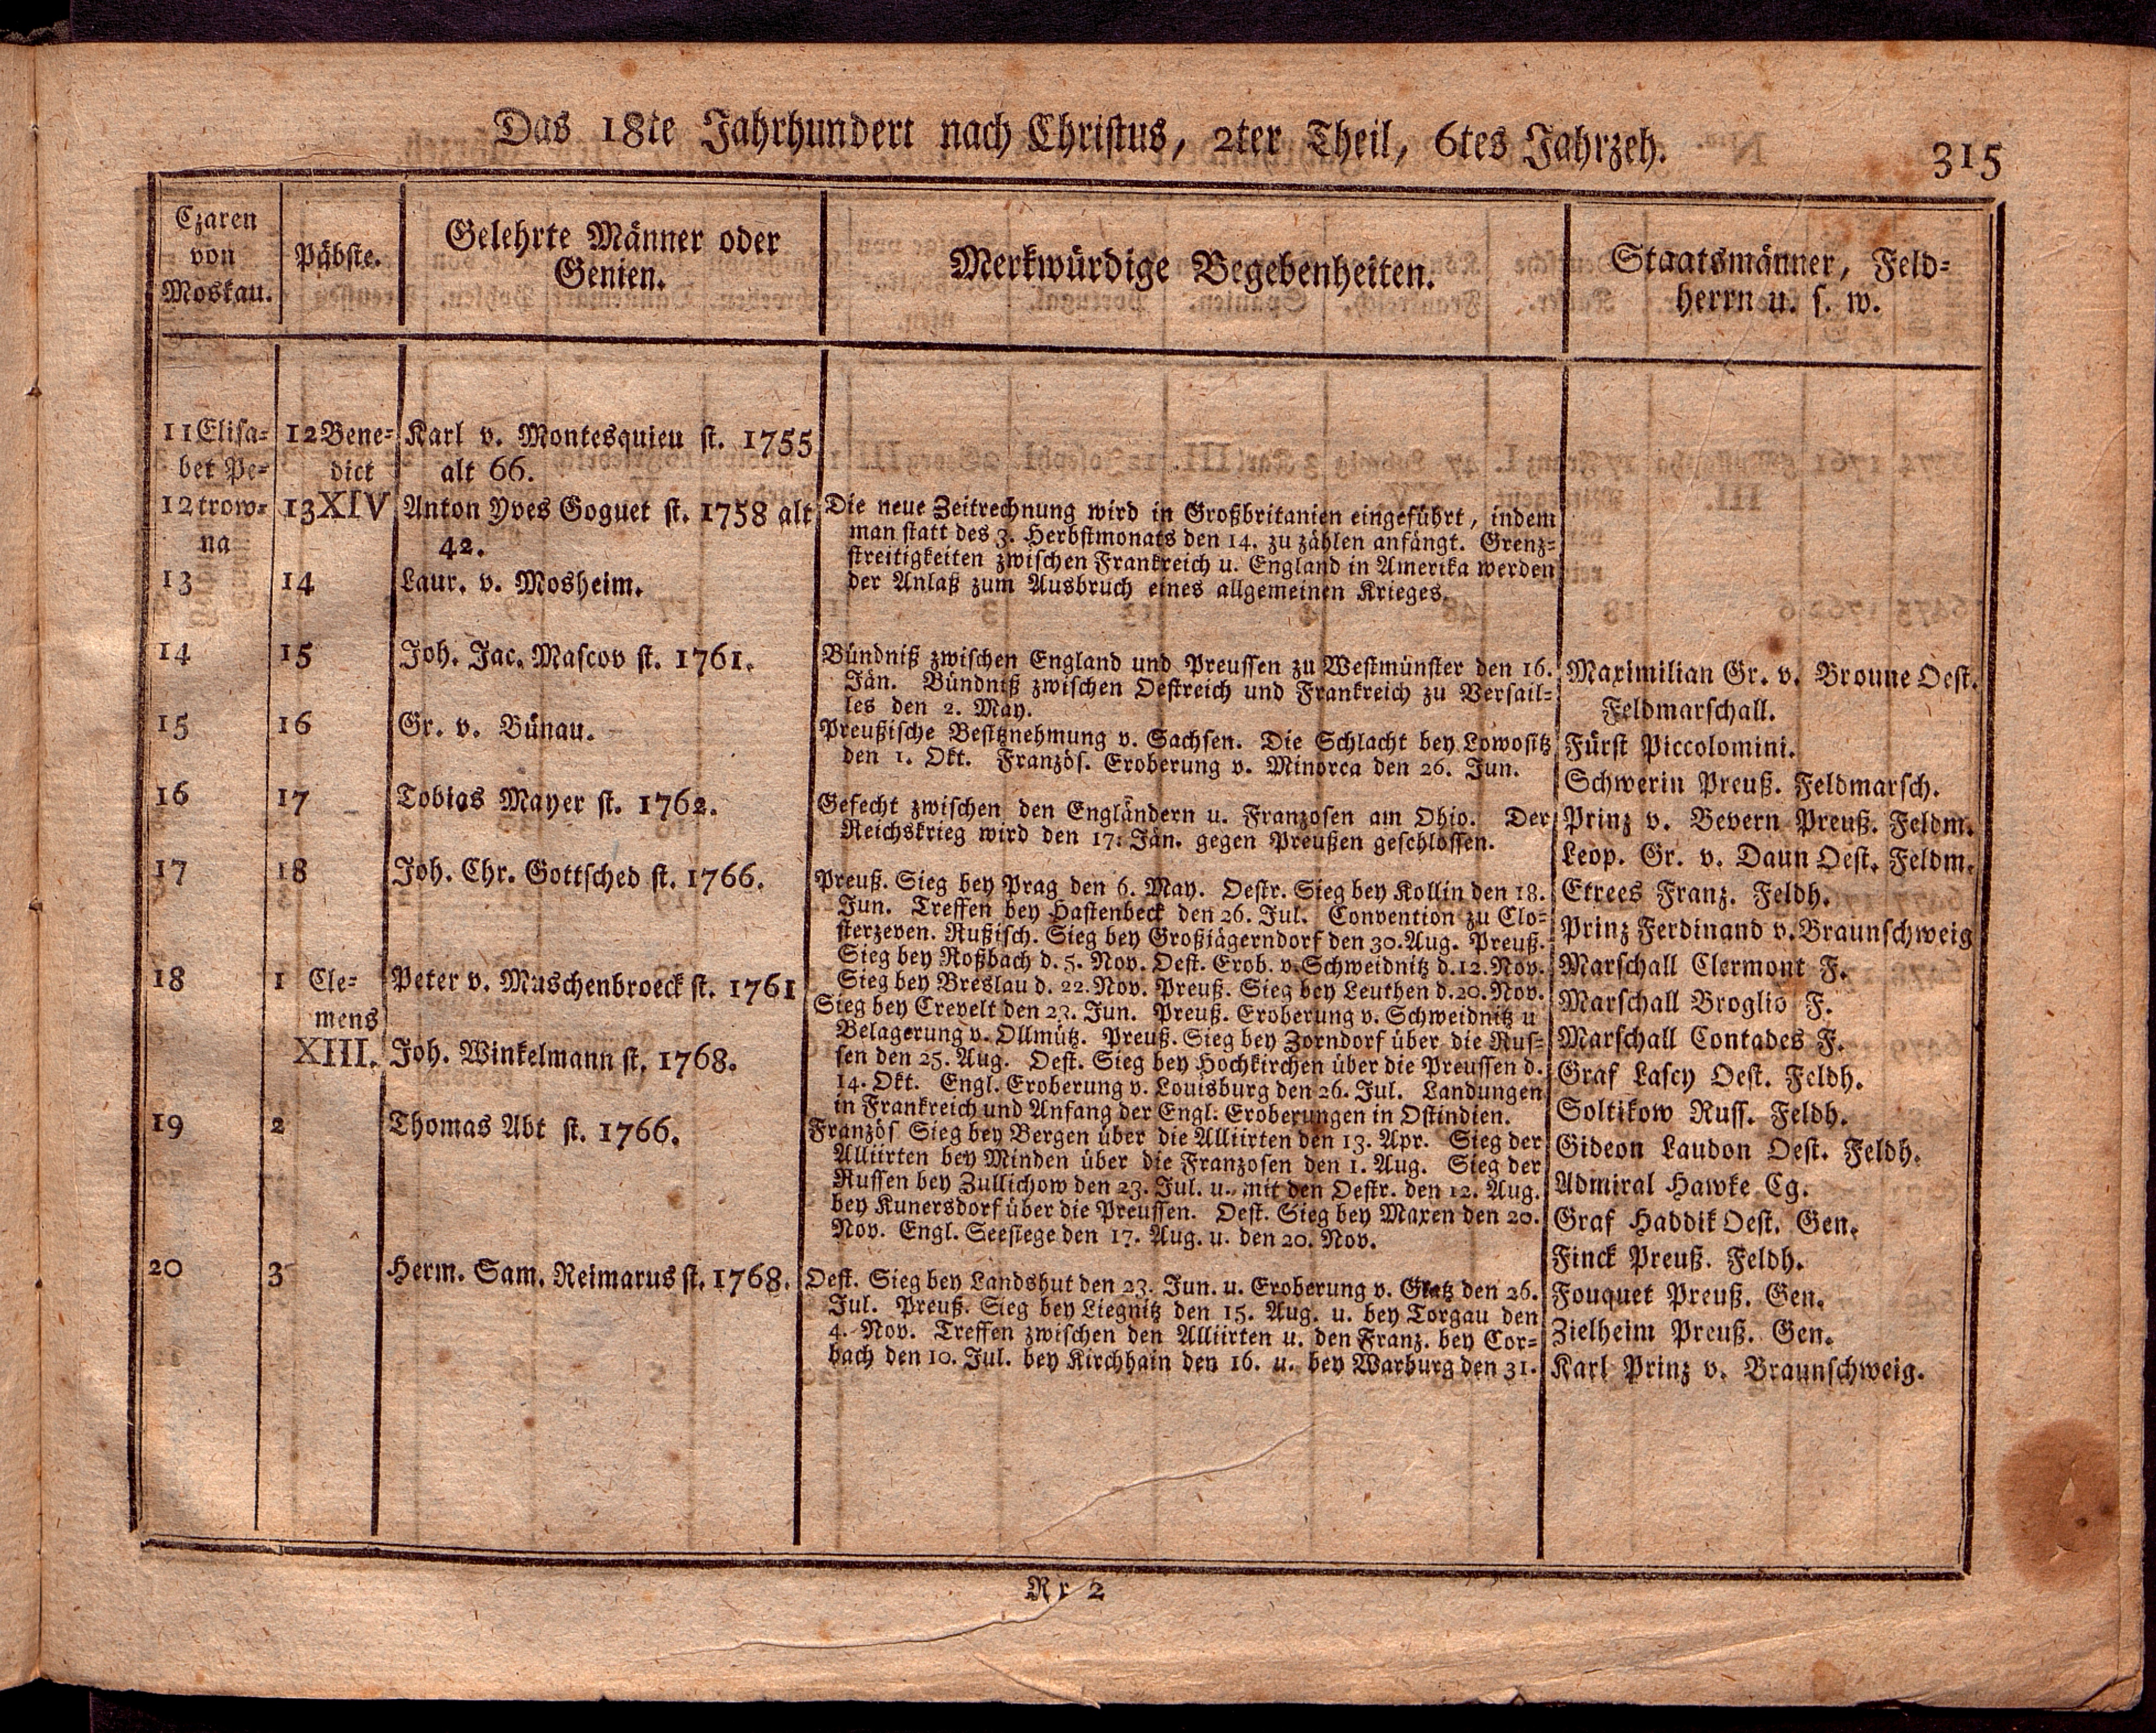 Das 18te Jahrhundert nach Christus, 2ter Theil, 6tes Jahrzeh.
315
Czaren
von
Moskau.
Päbste.
Gelehrte Männer oder
Genien.
Merkwürdige Begebenheiten.
Staatsmänner, Feld-
herrn u. s. w.
11 Elisa-
bet Pe-
12 trow-
na
13
14
15
16
17
18
19
20
12 Bene-
dict
13 XIV
14
15
16
17
18
1 Cle-
mens
XIII.
2
3
Karl v. Montesquieu st. 1755
alt 66.
Anton Yves Goguet st. 1758 alt
42.
Laur. v. Mosheim.
Joh. Jac. Mascov st. 1761.
Gr. v. Bünau.
Tobias Mayer st. 1762.
Joh. Chr. Gottsched st. 1766.
Peter v. Muschenbroeck st. 1761
Joh. Winkelmann st. 1768.
Thomas Abt st. 1766.
Herm. Sam. Reimarus st. 1768.
Die neue Zeitrechnung wird in Großbritanien eingeführt, indem
man statt des 3. Herbstmonats den 14. zu zählen anfängt. Grenz-
streitigkeiten zwischen Frankreich u. England in Amerika werden
der Anlaß zum Ausbruch eines allgemeinen Krieges.
Bündniß zwischen England und Preussen zu Westmünster den 16.
Jän. Bündniß zwischen Oestreich und Frankreich zu Versail-
les den 2. May.
Preußische Besitznehmung v. Sachsen. Die Schlacht bey Lowositz
den 1. Okt. Französ. Eroberung v. Minorca den 26. Jun.
Gefecht zwischen den Engländern u. Franzosen am Ohio. Der
Reichskrieg wird den 17. Jän. gegen Preußen geschlossen.
Preuß. Sieg bey Prag den 6. May. Oestr. Sieg bey Kollin den 18.
Jun. Treffen bey Hastenbeck den 26. Jul. Convention zu Clo-
sterzeven. Rußisch. Sieg bey Großjägerndorf den 30. Aug. Preuß.
Sieg bey Roßbach d. 5. Nov. Oest. Erob. v. Schweidnitz d. 12. Nov.
Sieg bey Breslau d. 22. Nov. Preuß. Sieg bey Leuthen d. 20. Nov.
Sieg bey Crevelt den 23. Jun. Preuß. Eroberung v. Schweidnitz u
Belagerung v. Ollmütz. Preuß. Sieg bey Zorndorf über die Rus-
sen den 25. Aug. Oest. Sieg bey Hochkirchen über die Preussen d.
14. Okt. Engl. Eroberung v. Louisburg den 26. Jul. Landungen
in Frankreich und Anfang der Engl. Eroberungen in Ostindien.
Französ Sieg bey Bergen über die Alliirten den 13. Apr. Sieg der
Alliirten bey Minden über die Franzosen den 1. Aug. Sieg der
Russen bey Zullichow den 23. Jul. u. mit den Oestr. den 12. Aug.
bey Kunersdorf über die Preussen. Oest. Sieg bey Maxen den 20.
Nov. Engl. Seesiege den 17. Aug. u. den 20. Nov.
Oest. Sieg bey Landshut den 23. Jun. u. Eroberung v. Glatz den 26.
Jul. Preuß. Sieg bey Liegnitz den 15. Aug. u. bey Torgau den
4. Nov. Treffen zwischen den Alliirten u. den Franz. bey Cor-
bach den 10. Jul. bey Kirchhain den 16. u. bey Warburg den 31.
Maximilian Gr. v. Broune Oest.
Feldmarschall.
Fürst Piccolomini.
Schwerin Preuß. Feldmarsch.
Prinz v. Bevern Preuß. Feldm.
Leop. Gr. v. Daun Oest. Feldm.
Etrees Franz. Feldh.
Prinz Ferdinand v. Braunschweig
Marschall Clermont F.
Marschall Broglio F.
Marschall Contades F.
Graf Lascy Oest. Feldh.
Soltikow Russ. Feldh.
Gideon Laudon Oest. Feldh.
Admiral Hawke Eg.
Graf Haddik Oest. Gen.
Finck Preuß. Feldh.
Fouquet Preuß. Gen.
Zielheim Preuß. Gen.
Karl Prinz v. Braunschweig.
Rr 2